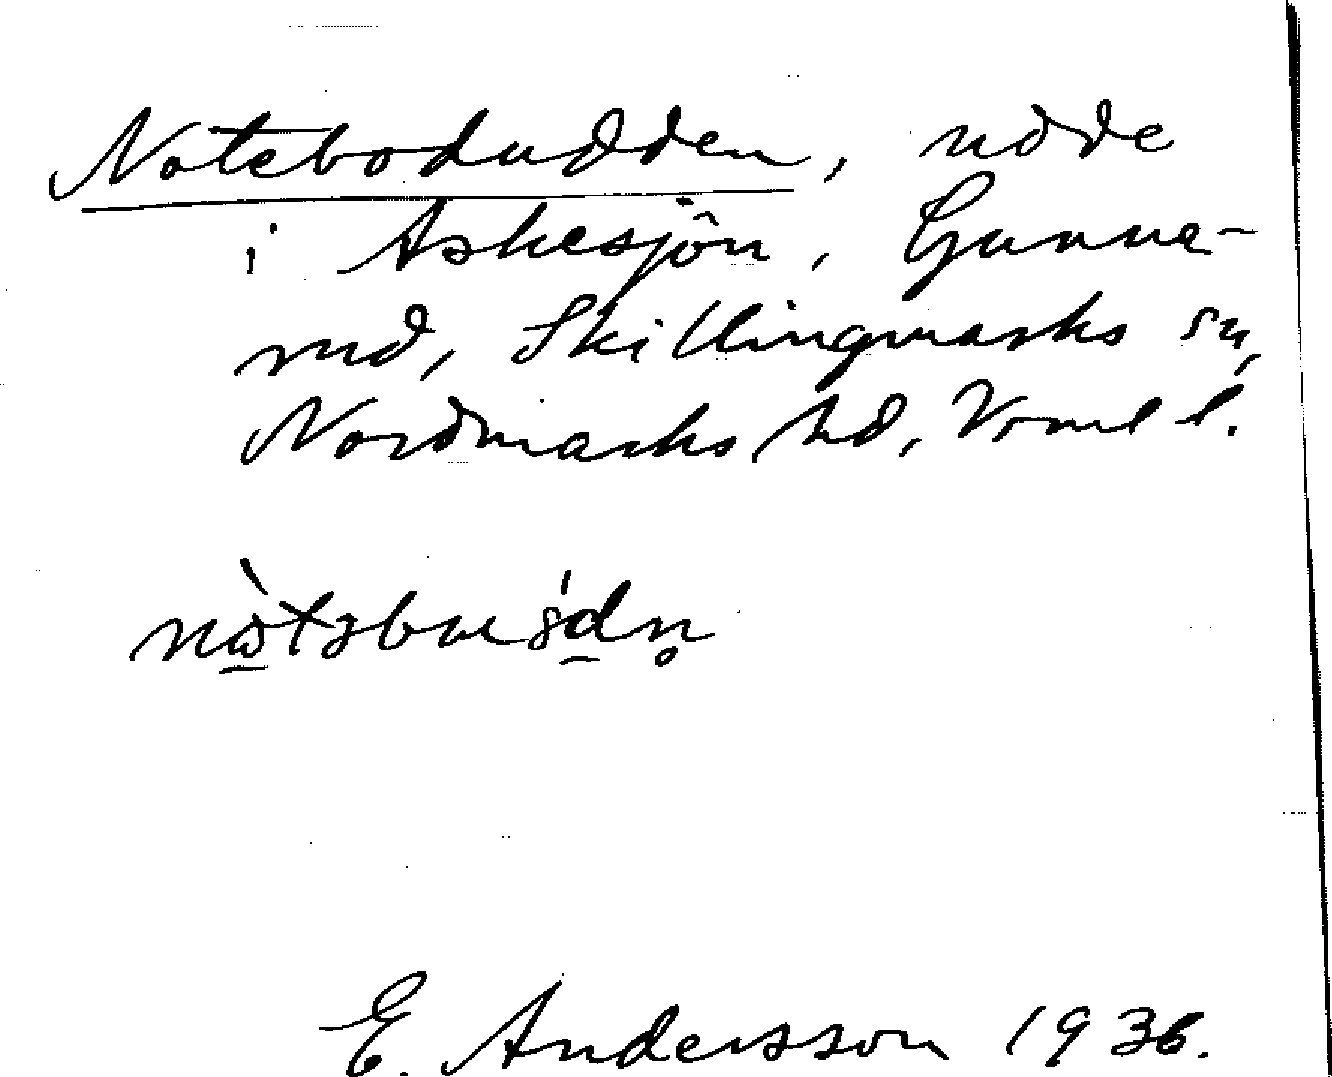 Notebodudden, udde
i Askesjön, Gunna-
rud, Skillingmarks sn,
Nordmarks hd, Vrml l.
E. Andersson 1936.